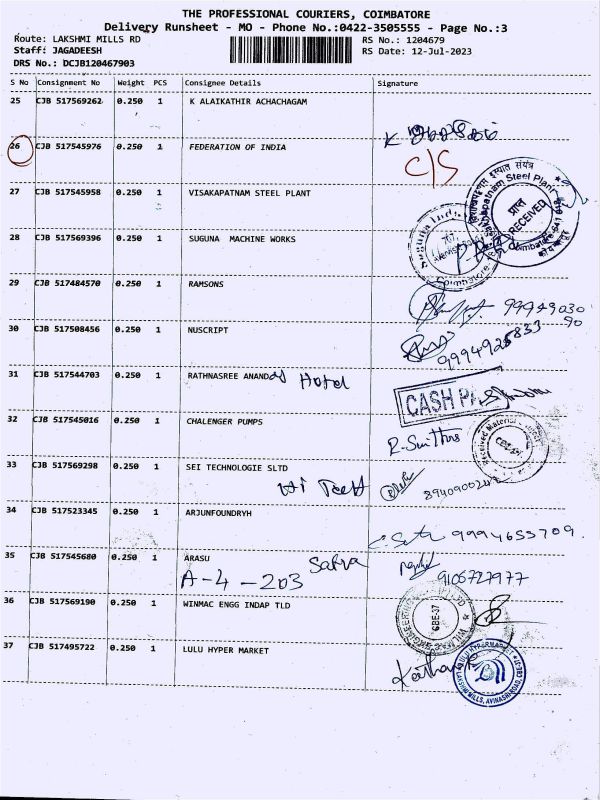 THE PROFESSIONAL COURIERS, COIMBATORE
Delivery Runsheet - MO - Phone No.:0422-3505555 - Page No.:3
Route: LAKSHMI MILLS RD
RS No.: 1204679
Staff: JAGADEESH
RS Date: 12-Jul-2023
DRS No.: DCJB120467903
S No Consignment No Weight PCS Consignee Details Signature
25 CJB 517569262 0.250 1 K ALAIKATHIR ACHACHAGAM
K
26 CJB 517545976 0.250 1 FEDERATION OF INDIA
C/S
27 CJB 517545958 0.250 1 VISAKAPATNAM STEEL PLANT
इस्पात संयंत्र
Steel Plant
प्राप्त
RECEIVED
28 CJB 517569396 0.250 1 SUGUNA MACHINE WORKS
Suguna
Coimbatore
29 CJB 517484570 0.250 1 RAMSONS
9994903090
30 CJB 517508456 0.250 1 NUSCRIPT
31 CJB 517544703 0.250 1 RATHNASREE ANANDAS Hotel
CASH
32 CJB 517545016 0.250 1 CHALENGER PUMPS
Received Material
33 CJB 517569298 0.250 1 SEI TECHNOLOGIE SLTD
Hi Tech
34 CJB 517523345 0.250 1 ARJUNFOUNDRYH
9994655709.
35 CJB 517545680 0.250 1 ARASU
A-4-203
9106727977
36 CJB 517569190 0.250 1 WINMAC ENGG INDAP TLD
CBE-37
37 CJB 517495722 0.250 1 LULU HYPER MARKET
LULU HYPERMARKET
LAKSHMI MILLS, AVINASHI ROAD, CBE-37